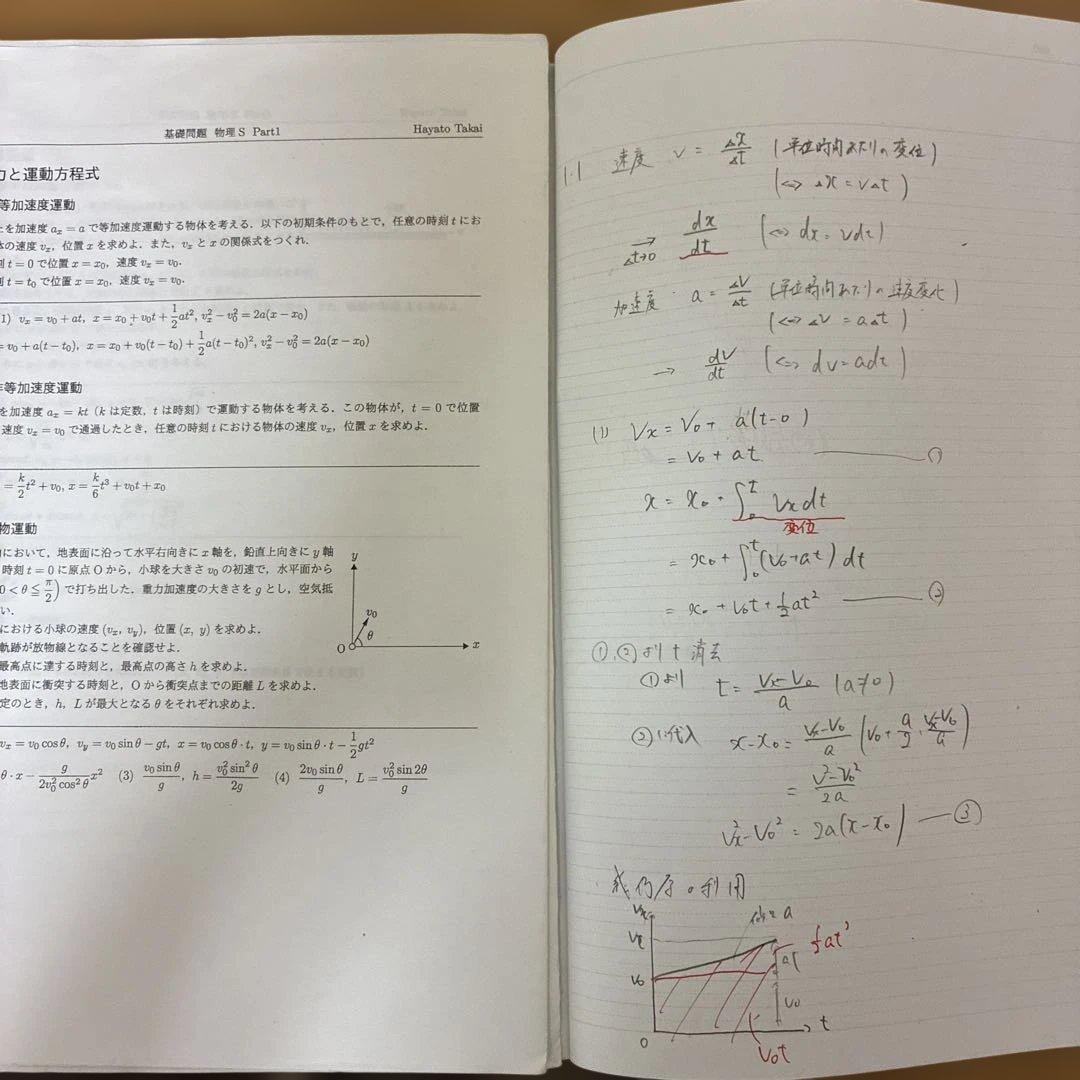 基礎問題 物理S Part1 Hayato Takai
力と運動方程式
等加速度運動
を加速度 a_x = a で等加速度運動する物体を考える．以下の初期条件のもとで，任意の時刻 t にお
の速度 v_x，位置 x を求めよ．また，v_x と x の関係式をつくれ．
t = 0 で位置 x = x_0，速度 v_x = v_0．
t = t_0 で位置 x = x_0，速度 v_x = v_0．
1) v_x = v_0 + at, x = x_0 + v_0t + 1/2 at^2, v_x^2 − v_0^2 = 2a(x − x_0)
= v_0 + a(t − t_0), x = x_0 + v_0(t − t_0) + 1/2 a(t − t_0)^2, v_x^2 − v_0^2 = 2a(x − x_0)
等加速度運動
を加速度 a_x = kt（k は定数，t は時刻）で運動する物体を考える．この物体が，t = 0 で位置
速度 v_x = v_0 で通過したとき，任意の時刻 t における物体の速度 v_x，位置 x を求めよ．
= k/2 t^2 + v_0, x = k/6 t^3 + v_0t + x_0
物運動
において，地表面に沿って水平右向きに x 軸を，鉛直上向きに y 軸
時刻 t = 0 に原点 O から，小球を大きさ v_0 の初速で，水平面から
0 < θ ≦ π/2) で打ち出した．重力加速度の大きさを g とし，空気抵
い．
における小球の速度 (v_x, v_y)，位置 (x, y) を求めよ．
軌跡が放物線となることを確認せよ．
最高点に達する時刻と，最高点の高さ h を求めよ．
地表面に衝突する時刻と，O から衝突点までの距離 L を求めよ．
定のとき，h，L が最大となる θ をそれぞれ求めよ．
y
v_0
θ
O
x
v_x = v_0 cos θ, v_y = v_0 sin θ − gt, x = v_0 cos θ · t, y = v_0 sin θ · t − 1/2 gt^2
θ · x − g/(2v_0^2 cos^2 θ) x^2 (3) v_0 sin θ/g, h = v_0^2 sin^2 θ/2g (4) 2v_0 sin θ/g, L = v_0^2 sin 2θ/g
1.1 速度 v = Δx/Δt (単位時間あたりの変位)
(⇔ Δx = vΔt)
→ Δt→0 dx/dt (⇔ dx = vdt)
加速度 a = Δv/Δt (単位時間あたりの速度変化)
(⇔ Δv = aΔt)
→ dv/dt (⇔ dv = adt)
(1) Vx = V0 + a(t-0)
= V0 + at ①
x = x0 + ∫_0^t Vx dt
変位
= x0 + ∫_0^t (V0 + at) dt
= x0 + V0t + 1/2 at^2 ②
①,②より t 消去
①より t = (Vx - V0)/a (a≠0)
②に代入 x - x0 = (Vx - V0)/a (V0 + a/2 · (Vx - V0)/a)
= (V^2 - V0^2)/2a
Vx^2 - V0^2 = 2a(x - x0) ③
の利用
Vx
Vx
V0
a
1/2 at^2
at
V0
0
t
V0t